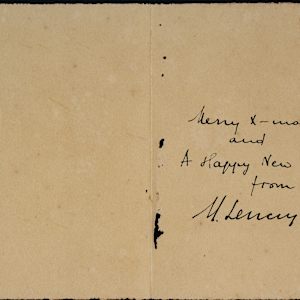 Merry X-ma
and
A Happy New
from
M.